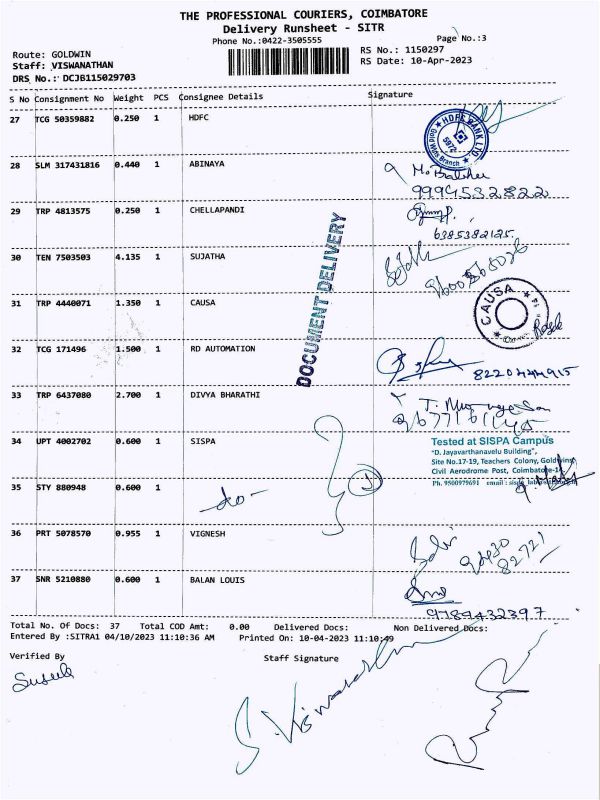 THE PROFESSIONAL COURIERS, COIMBATORE
Delivery Runsheet - SITR
Phone No.:0422-3505555
Page No.:3
Route: GOLDWIN
RS No.: 1150297
Staff: VISWANATHAN
RS Date: 10-Apr-2023
DRS No.: DCJB115029703
S No Consignment No Weight PCS Consignee Details Signature
27 TCG 50359882 0.250 1 HDFC
HDFC BANK LTD
28 SLM 317431816 0.440 1 ABINAYA
9994532822
29 TRP 4813575 0.250 1 CHELLAPANDI
6385382125
30 TEN 7503503 4.135 1 SUJATHA
DOCUMENT DELIVERY
31 TRP 4440071 1.350 1 CAUSA
CAUSA
32 TCG 171496 1.500 1 RD AUTOMATION
8220444915
33 TRP 6437080 2.700 1 DIVYA BHARATHI
34 UPT 4002702 0.600 1 SISPA
Tested at SISPA Campus
"D. Jayavarthanavelu Building",
Site No.17-19, Teachers Colony, Goldwins
Civil Aerodrome Post, Coimbatore-14
Ph. 9500979691 email :
35 STY 880948 0.600 1
-do-
36 PRT 5078570 0.955 1 VIGNESH
82721
37 SNR 5210880 0.600 1 BALAN LOUIS
9789432397
Total No. Of Docs: 37 Total COD Amt: 0.00 Delivered Docs: Non Delivered Docs:
Entered By :SITRA1 04/10/2023 11:10:36 AM Printed On: 10-04-2023 11:10:49
Verified By Staff Signature
S. Viswanathan